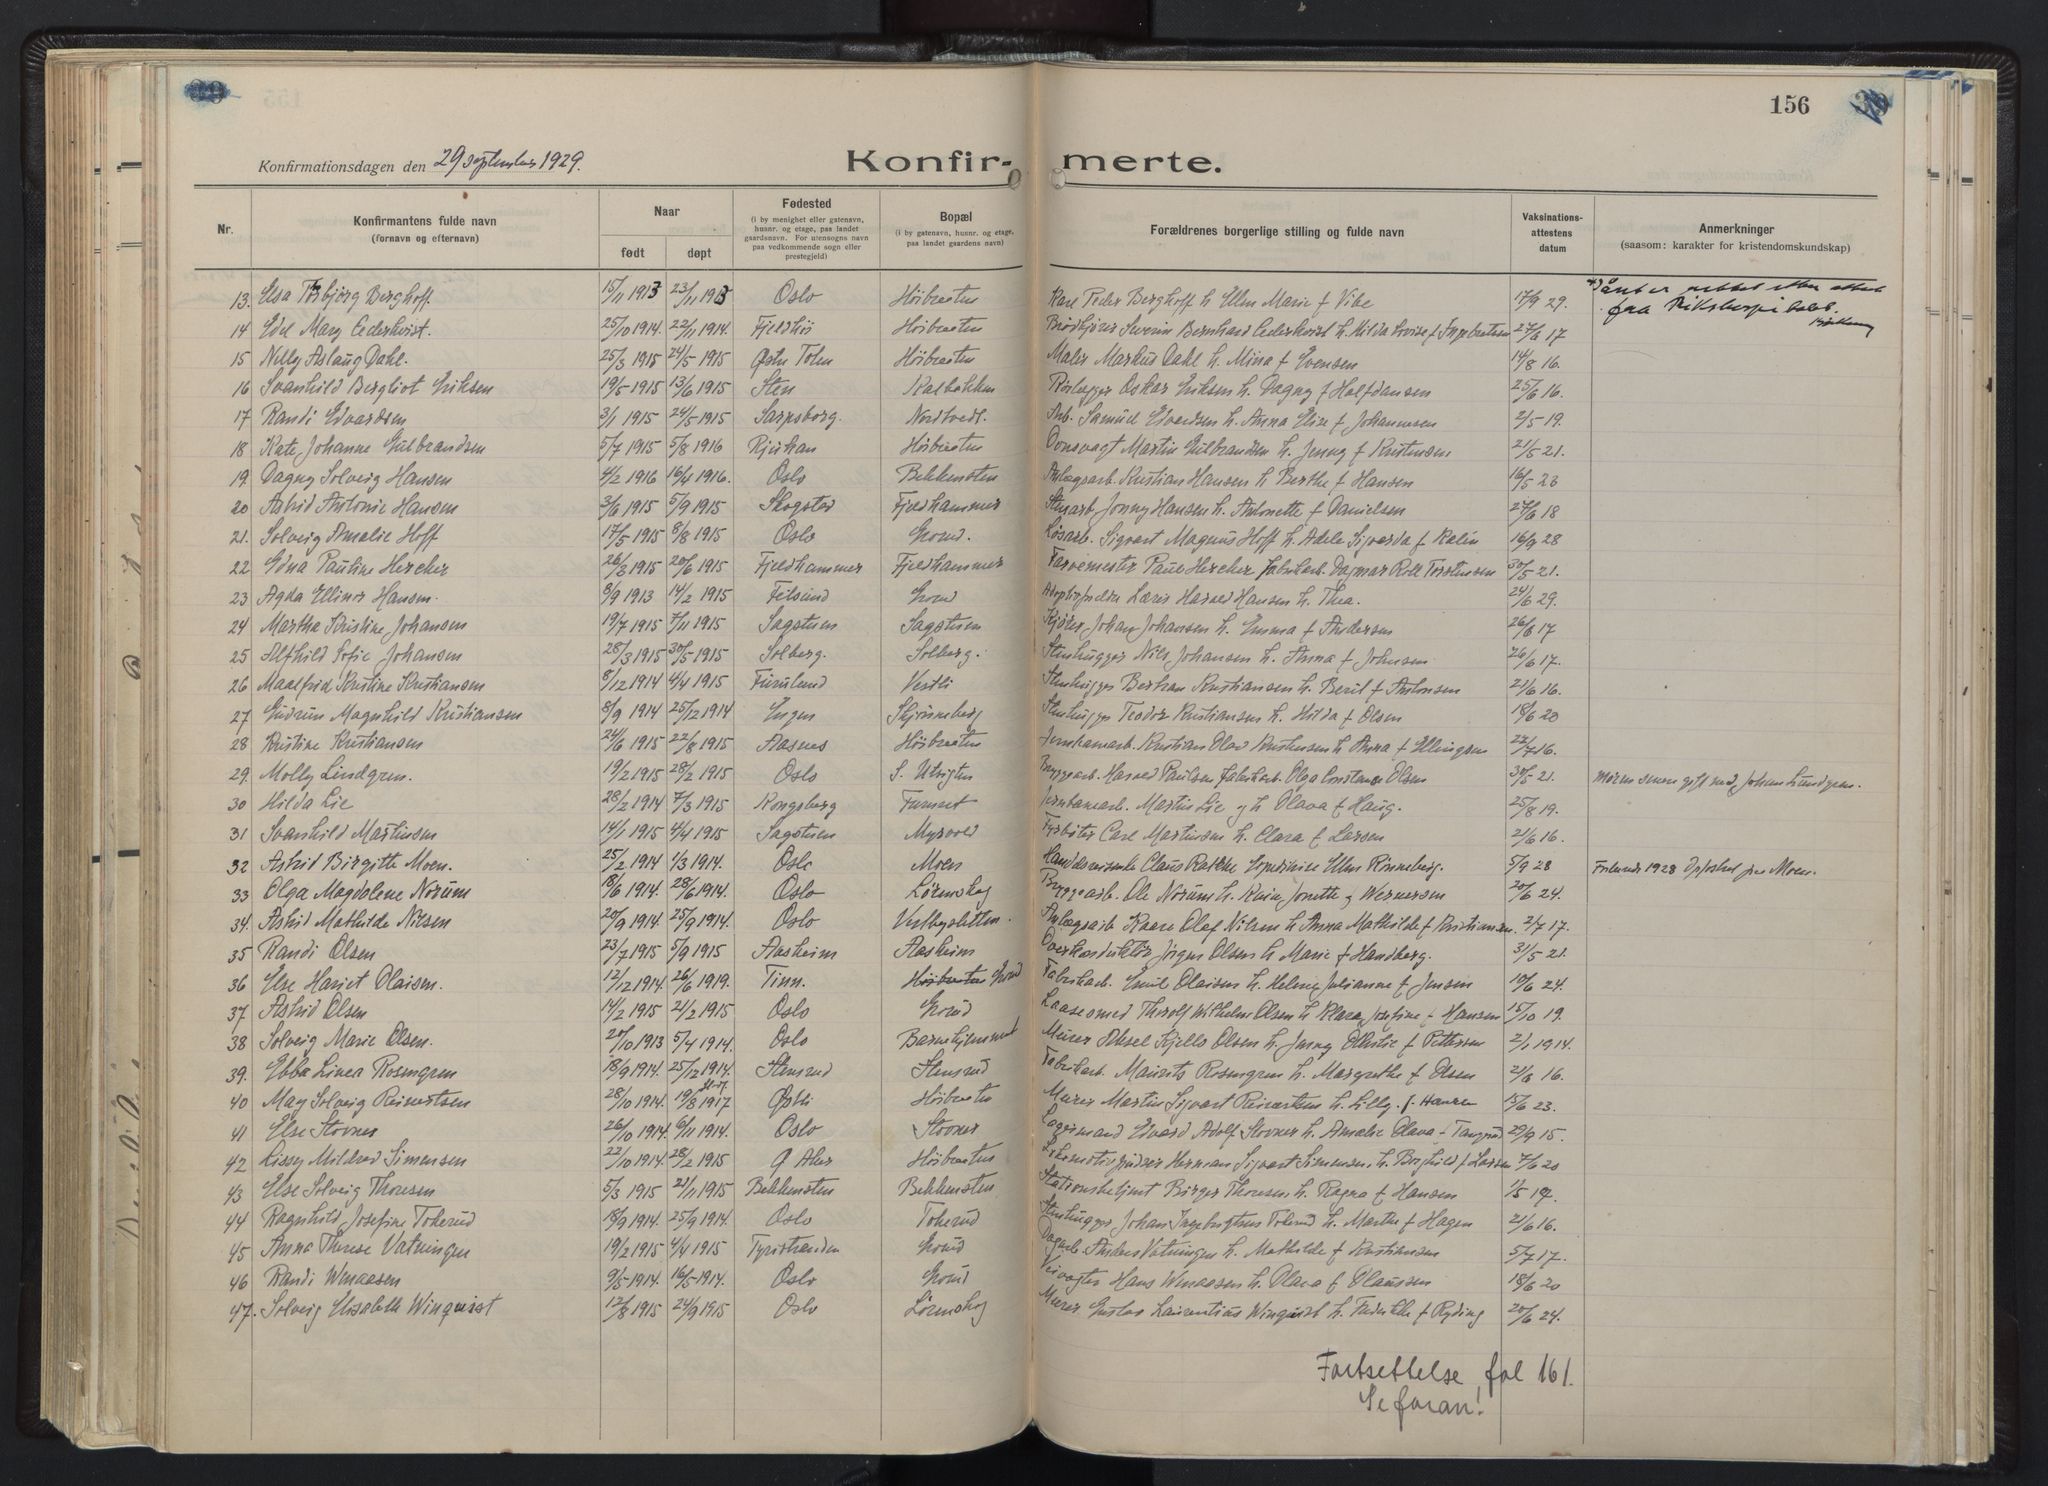 156
Konfirmationsdagen den 29 september 1929.
Konfir- merte.
Nr. Konfirmantens fulde navn (fornavn og efternavn) Naar født døpt Fødested (i by menighet eller gatenavn, husnr. og etage, paa landet gaardsnavn. For utensogns navn paa vedkommende sogn eller prestegjeld) Bopæl (i by gatenavn, husnr. og etage, paa landet gaardens navn) Forældrenes borgerlige stilling og fulde navn Vaksinations-attestens datum Anmerkninger (saasom: karakter for kristendomskundskap)
13. Elsa Torbjörg Berghoff 15/11 1913 23/11 1913 Oslo Höibraaten Karl Peder Berghoff h. Ellen Marie f Vibe 17/9 29.
14 Edel Mary Cederkvist. 25/10 1914. 22/11 1914. Fjeldhöi Höibraaten Brödkjörer Bernhard Cederkvist h. Hilda Lovise f Ingebretsen 27/6 17
15 Nelly Aslaug Dahl. 25/3 1915 24/5 1915 Östre Toten Höibraaten Maler Markus Dahl h. Mina f Evensen 14/8 16.
16 Svanhild Bergliot Eriksen 19/5 1915 13/6 1915 Sten Kalbakken Rörlegger Oskar Eriksen h. Dagny f Halfdansen 25/6 16.
17 Randi Edvardsen 3/1 1915 24/5 1915 Sarpsborg. Nordtvedt. Arb. Samuel Edvardsen h. Anna Elise f Johannesen 2/5 19.
18 Kate Johanne Gulbrandsen 5/7 1915 5/8 1916 Rjukan Höibraaten Ovnsvagt Martin Gulbrandsen h. Jenny f Kristensen 21/5 21.
19. Dagny Solveig Hansen 4/2 1916 16/4 1916. Oslo Bekkensten Anlægsarb. Kristian Hansen h Berthe f Hansen 16/5 23
20 Astrid Antonie Hansen 3/6 1915 5/9 1915 Skogstad Fjeldhammer Stenarb. Jonny Hansen h. Antonette f Danielsen 27/6 18
21. Solveig Amalie Hoff 17/5 1915 8/8 1915 Oslo Grorud. Løsarb. Sigvart Magnus Hoff h. Adele Sigvarda f Kalin 16/9 28
22 Edna Pauline Hercher 26/3 1915 20/6 1915 Fjeldhammer Fjeldhammer Farvemester Paul Hercher fabrikarb. Dagmar Roll Torstensen 30/5 21.
23 Agda Ellinor Hansen. 8/9 1913 14/2 1915 Grorud Adoptivforeldre Lars Harald Hansen h. Thea. 24/6 29.
24 Martha Kristine Johansen 19/7 1915 7/11 1915 Sagstuen Sagstuen Kjörer Johan Johansen h. Emma f Andersen 26/6 17
25 Alfhild Sofie Johansen 28/3 1915 30/5 1915 Solberg. Solberg. Stenhugger Nils Johansen h. Anna f Johnsen 26/6 17.
26 Maalfrid Kristine Kristiansen 8/12 1914 4/4 1915 Furulund Vestli Stenhugger Bertran Kristiansen h. Beril f Antonsen 21/6 16.
27 Gudrun Magnhild Kristiansen 8/9 1914 25/12 1914 Engen Skjönneberg Stenhugger Teodor Kristiansen h. Hilda f Olsen 18/6 20
28 Kristine Kristiansen 24/6 1915 22/8 1915 Aasnes Höibraaten Jernbanearb. Kristian Olav Kristiansen h Anna f Ellingsen 22/7 16.
29. Molly Lindgren. 19/2 1915 28/2 1915 Oslo S. Utsigten Byggearb. Harald Paulsen fabrikarb. Olga Constance Olsen 30/5 21. Moren senere gift med Johan Lundgren.
30 Hilda Lie 28/2 1914 7/3 1915 Kongsberg Furuset Jernbanearb. Martin Lie og h Olava f Haug. 25/8 19.
31 Svanhild Martinsen 14/1 1915 4/4 1915 Sagstuen Myrvold Fyrböter Carl Martinsen h. Clara f Larsen 21/6 16.
32 Astrid Birgitte Moen. 25/2 1914 1/3 1914. Oslo Moen Claus Ellen Rönneberg. 5/9 28
33 Olga Magdalene Norum 18/6 1914. 28/6 1914. Oslo Lörenskog Byggearb. Ole Norum h. Jonette f Wernersen 20/6 24.
34. Astrid Mathilde Nilsen 20/9 1914. 25/9 1914. Oslo Vestbysletten. Anlægsarb Kaare Olaf Nilsen h Anna Mathilde f Kristiansen. 2/7 17.
35 Randi Olsen 23/7 1915 5/9 1915 Aasheim Aasheim Overkonduktör Jörgen Olsen h Marie f Handberg. 31/5 21.
36 Else Hariet Olaisen. 12/12 1914. 26/6 1919. Tinn. Höibraaten Grorud Fabrikarb. Emil Olaisen h. Helene Julianne f Jensen 10/6 24.
37 Astrid Olsen 14/2 1915 21/2 1915 Oslo Grorud Laasesmed Thorolf Wilhelm Olsen h Klara Josefine f Hansen 15/10 19.
38 Solveig Marie Olsen. 20/10 1913 5/4 1914. Oslo Barnehjemmet Murer Aksel Kjell Olsen h. Jenny f Pettersen 2/1 1914.
39. Ebba Linea Rosengren 18/9 1914. 25/12 1914. Stensrud Stensrud Fabrikarb. Maurits Rosengren h. Margrethe f Olsen 21/8 16.
40 May Solveig Reinertsen 28/10 1914. 19/8 1917 Östli Höibraaten Murer Martin Sigvart Reinertsen h. Lilly. f. Hansen 15/6 23.
41 Else Stovner 26/10 1914. 6/11 1914. Oslo Stovner Lagermand Edvard Adolf Stovner h. Amalie Olava f Tangrud 29/9 15.
42 Lissy Mildred Simensen 22/10 1914. 28/2 1915 Ø Aker Höibraaten Lokomotivpudser Herman Sigvart Simensen, h. Borghild f Larsen 7/6 20
43 Else Solveig Thoresen 5/3 1915 21/11 1915 Bekkensten Bekkensten Stationsbetjent Birger Thoresen h. Ragna f Hansen 1/5 17.
44 Ragnhild Josefine Tokerud 18/9 1914. 25/9 1914. Oslo Tokerud Stenhugger Johan Ingebrigtsen Tokerud h. Marthe f Hagen 21/6 16.
45 Anna Therese Vatningen 19/2 1915 4/4 1915 Tyristranden Grorud Dagarb. Anders Vatningen h. Mathilde f Kristiansen 5/7 17.
46 Randi Wenaasen 9/5 1914. 16/5 1914. Oslo Grorud Veivogter Hans Wenaasen h. Olava f Olaussen 18/6 20
47. Solveig Elisabeth Winqvist 12/8 1915 24/9 1915 Oslo Lörenskog Murer Gustav Laurentius Winquist h. f Ryding 20/6 24.
Fortsettelse fol 161.
Se foran!